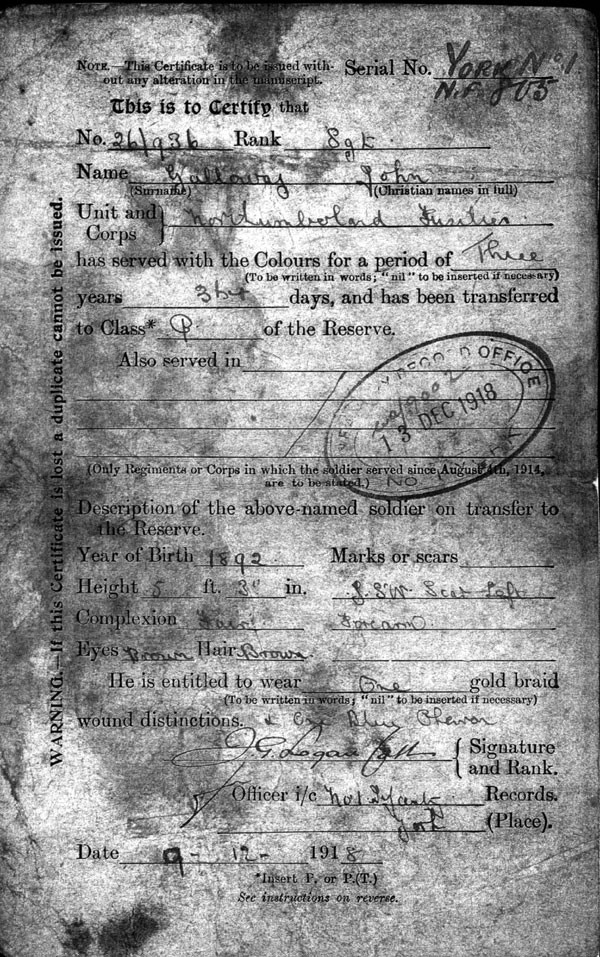 NOTE.—This Certificate is to be issued with-
out any alteration in the manuscript.
Serial No. YORK No 1
N.F. 805
This is to Certify that
No. 26/936 Rank Sgt
Name Galloway John
(Surname) (Christian names in full)
Unit and Corps } Northumberland Fusiliers
has served with the Colours for a period of Three
(To be written in words; "nil" to be inserted if necessary)
years days, and has been transferred
to Class* P of the Reserve.
Also served in
RECORD OFFICE
13 DEC 1918
(Only Regiments or Corps in which the soldier served since August 4th, 1914,
are to be stated.)
Description of the above-named soldier on transfer to
the Reserve.
Year of Birth 1892 Marks or scars
Height 5 ft. 3" in. Scar Left
Complexion Fair Forearm
Eyes Brown Hair Brown
He is entitled to wear One gold braid
(To be written in words; "nil" to be inserted if necessary)
wound distinctions. & One Blue Chevron
J. G. Logan { Signature
and Rank.
Officer i/c Records.
York (Place).
Date 9-12- 1918
*Insert P. or P.(T.)
See instructions on reverse.
WARNING.—If this Certificate is lost a duplicate cannot be issued.